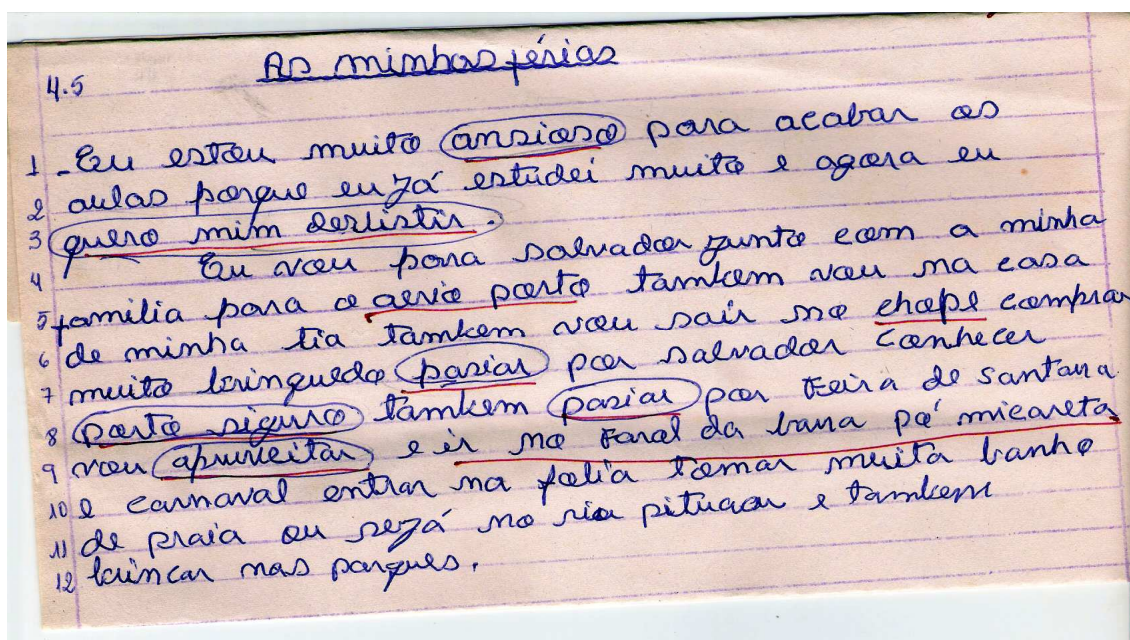 As minhas férias
4.5
1 - Eu estou muito ansioso para acabar as
2 aulas porque eu já estudei muito e agora eu
3 quero mim derlistir.
4 Eu vou para salvador junto com a minha
5 familia para o aerio porto tambem vou na casa
6 de minha tia tambem vou sair no chope comprar
7 muito bringuedo pasiar por salvador conhecer
8 porto siguro tambem pasiar por Feira de santana
9 vou apruveitar e ir no Farol da barra pá micareta
10 e carnaval entrar na folia tomar muita banho
11 de praia ou sejá no rio pituacu e tambem
12 brincar nas parques.